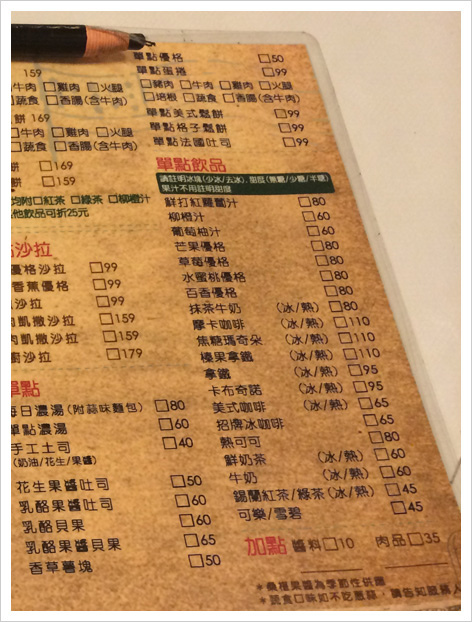 單點優格 □50
單點蛋捲 □99
□豬肉 □牛肉 □雞肉 □火腿
□培根 □蔬食 □香腸(含牛肉)
單點美式鬆餅 □99
單點格子鬆餅 □99
單點法國吐司 □99
單點飲品
請註明冰塊(少冰/去冰), 甜度(焦糖/少糖/半糖)
果汁不用註明甜度
鮮打紅蘿蔔汁 □80
柳橙汁 □60
葡萄柚汁 □60
芒果優格 □80
草莓優格 □80
水蜜桃優格 □80
百香優格 □80
抹茶牛奶 (冰/熱) □80
摩卡咖啡 (冰/熱) □110
焦糖瑪奇朵 (冰/熱) □110
榛果拿鐵 (冰/熱) □110
拿鐵 (冰/熱) □95
卡布奇諾 (冰/熱) □95
美式咖啡 (冰/熱) □65
招牌冰咖啡 □65
熱可可 □80
鮮奶茶 (冰/熱) □60
牛奶 (冰/熱) □60
錫蘭紅茶/綠茶(冰/熱) □45
可樂/雪碧 □45
加點 醬料□10 肉品□35
*桑椹果醬為季節性供應
*蔬食口味如不吃蔥蒜, 請告知服務人
159
牛肉 □雞肉 □火腿
□蔬食 □香腸(含牛肉)
餅 169
□牛肉 □雞肉 □火腿
□蔬食 □香腸(含牛肉)
餅 □169
餅 □159
均附□紅茶 □綠茶 □柳橙汁
其他飲品可折25元
沙拉
優格沙拉 □99
香蕉優格 □99
沙拉 □99
肉凱撒沙拉 □159
肉凱撒沙拉 □159
廚沙拉 □179
單點
每日濃湯(附蒜味麵包) □80
單點濃湯 □60
手工土司 □40
(奶油/花生/果醬)
花生果醬吐司 □50
乳酪果醬吐司 □60
乳酪貝果 □60
乳酪果醬貝果 □65
香草薯塊 □50